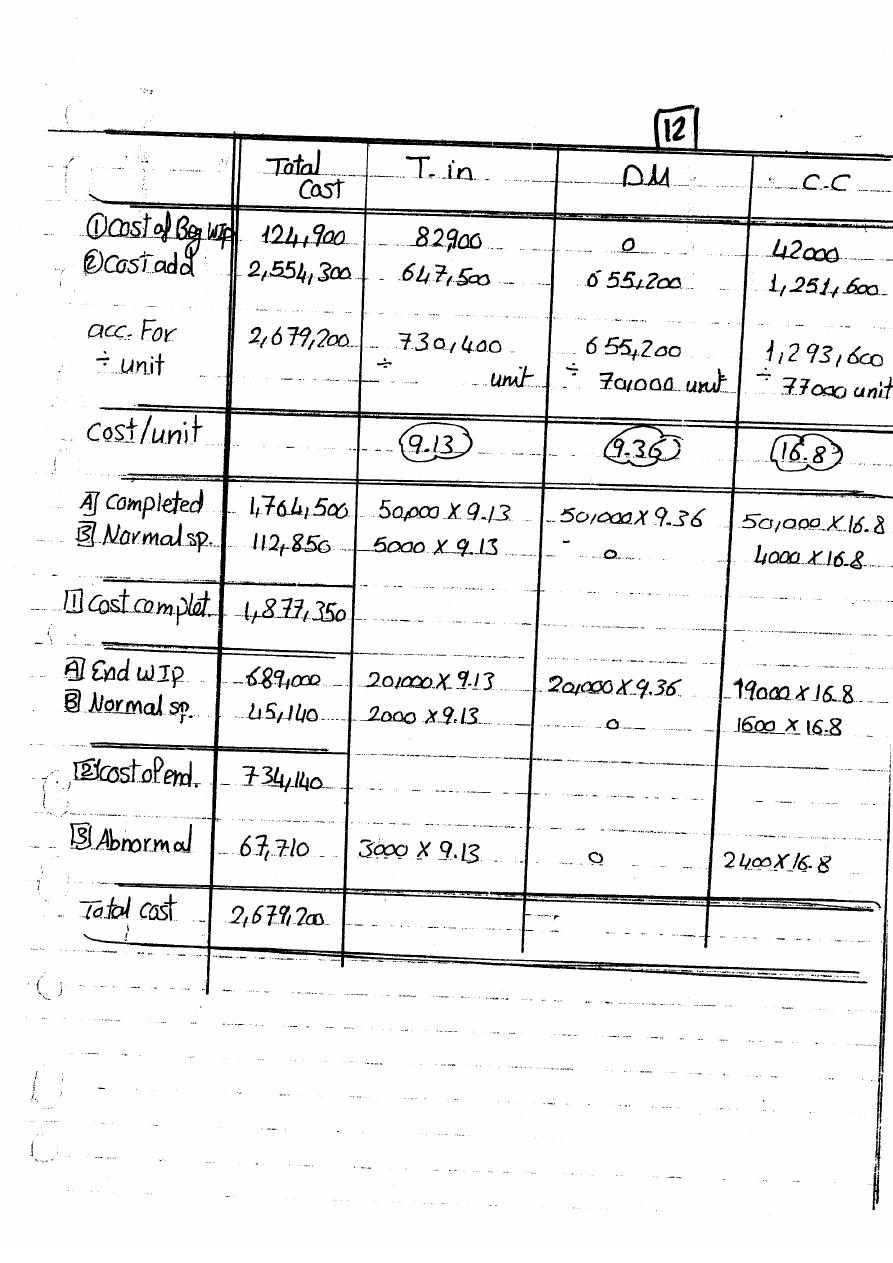 12
Total Cost T. in DM C.C
① Cost of Beg WIP 124,900 82900 0 42000
② Cost add 2,554,300 647,500 655,200 1,251,600
acc. For 2,679,200 730,400 655,200 1,293,600
÷ unit ÷ unit ÷ 70,000 unit ÷ 77000 unit
Cost/unit 9.13 9.36 16.8
A Completed 1,764,500 50,000 X 9.13 50,000 X 9.36 50,000 X 16.8
B Normal sp. 112,850 5000 X 9.13 0 4000 X 16.8
1 Cost complet. 1,877,350
A End WIP 689,000 20,000 X 9.13 20,000 X 9.36 19000 X 16.8
B Normal sp. 45,140 2000 X 9.13 0 1600 X 16.8
2 Cost of end. 734,140
3 Abnormal 67,710 3000 X 9.13 0 2400 X 16.8
Total cost 2,679,200